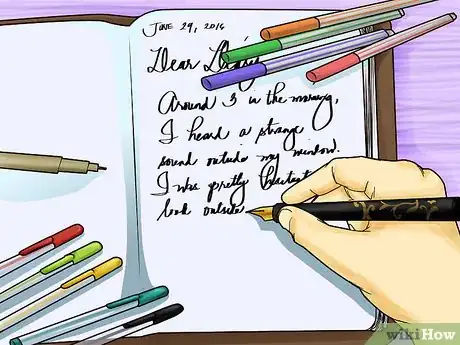 June 29, 2016
Dear Diary
Around 3 in the morning,
I heard a strange
sound outside my window.
I was pretty hesitant
look outside
wikiHow